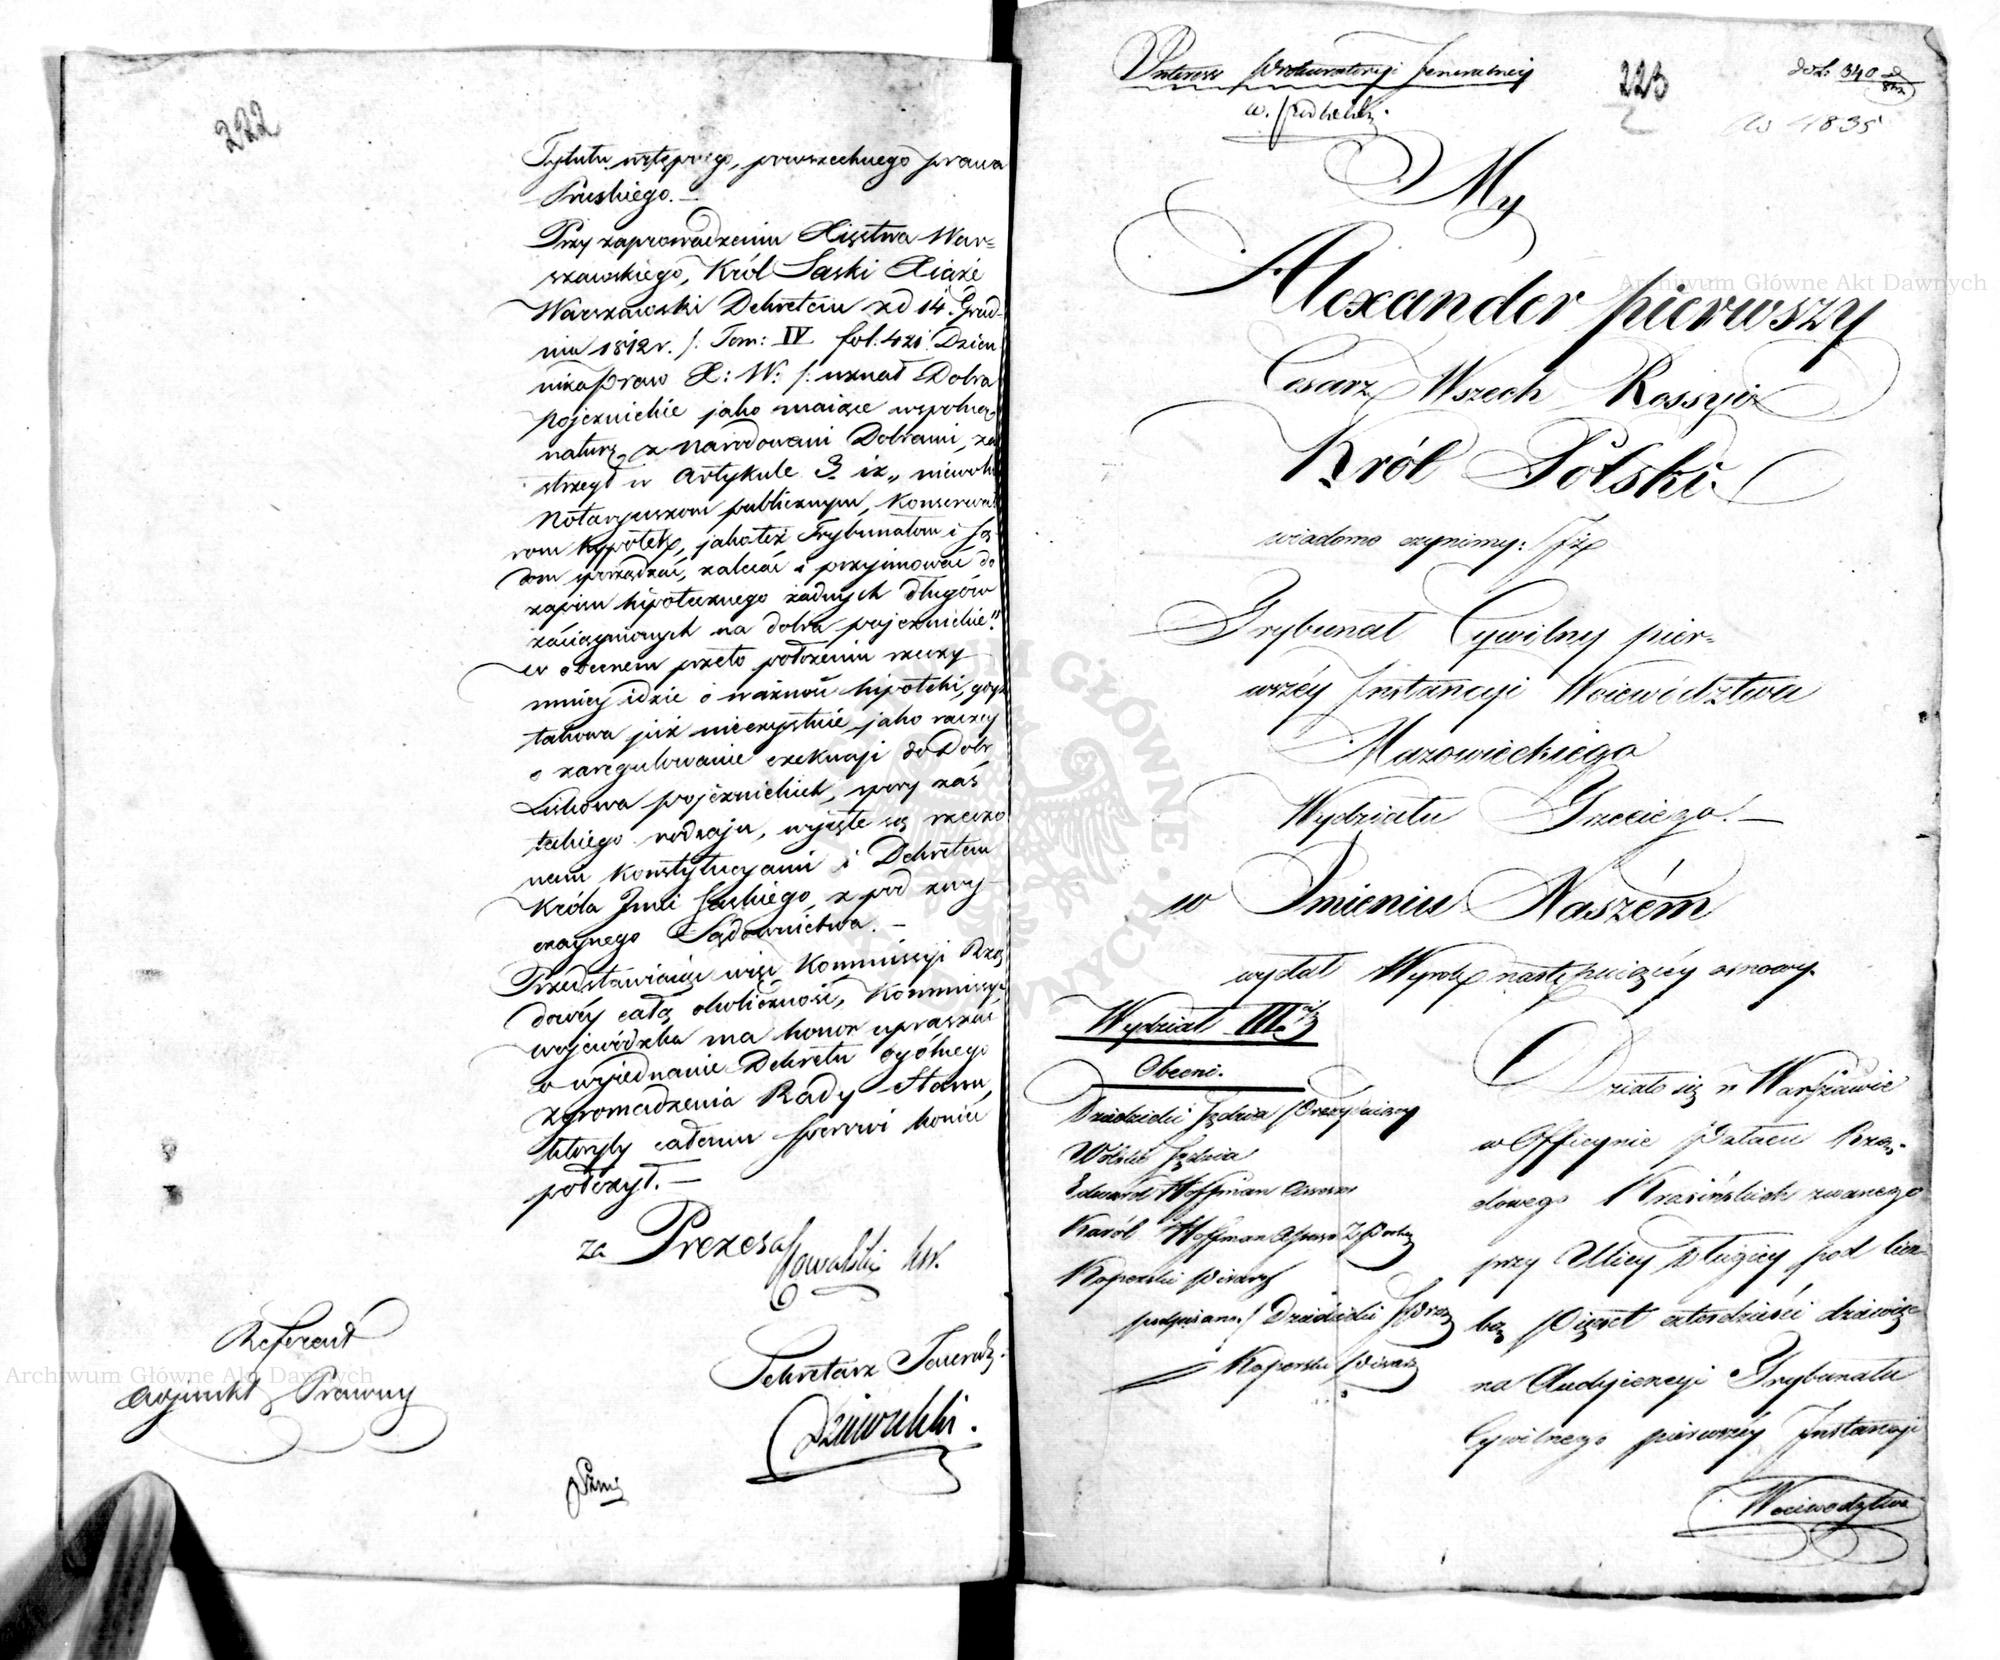 222
Tytułu wstępnego, powszechnego prawa
Pruskiego. —
Przy zaprowadzeniu Xięstwa War=
szawskiego, Król Saski Xiąże
Warszawski Dekretem z d 14. Grud-
nia 1812 r. /: Tom: IV fol: 421. Dzien
nika praw X: W: /: uznał Dobra
pojeznickie jako maiące wspólną
naturę z Narodowemi Dobrami, za
strzegł w Artykule 3. iż „ niewolno
Notaryuszom publicznym, Konserwato
rom hypotek, jako też Trybunałom i Są-
dom sporządzać, zalecać i przyjmować do
zapisu hipotecznego żadnych długów
zaciągnionych na dobra pojeznickie."
w obecnem przeto położeniu rzeczy
mniej idzie o ważność hipoteki, gdyż
takowa już nieexystuie, jako raczey
o zaregulowanie exekucyi do Dobr
Lukowa pojeznickich, spory zaś
takiego rodzaju, wyjęte są rzeczo
nemi Konstytucyami i Dekretem
Króla Jmci Saskiego, z pod zwy-
czaynego Sądownictwa. —
Przedstawiaiąc więc Kommissyi Rzą
dowéy całą okoliczność, Kommissya
wojewódzka ma honor upraszać
o wyjednanie Dekretu ogólnego
zgromadzenia Rady Stanu,
któryby całemu sporowi koniec
położył. —
za Prezesa Kowalski
Sekretarz Jeneralny
Referent
Adjunkt Prawny
Interess Prokuratoryi Jeneralney
223
do L. 340
4835
My
Alexander pierwszy
Cesarz Wszech Rossyi
Król Polski.
wiadomo czynimy: Iż
Trybunał Cywilny pier=
wszéy Instancyi Woiewództwa
Mazowieckiego
Wydziału Trzeciego. —
w Imieniu Naszém
wydał Wyrok następuiącéy osnowy.
Wydział III.
Obecni.
Dziedzicki Sędzia Prezyduiący
Wolski Sędzia
Edward Hoffman Assessor
Karól Hoffman
Koperski Pisarz
podpisano / Dziedzicki Prez
Koperski Pisarz
Działo się w Warszawie
w Officynie Pałacu Rzą-
dowego Krasińskich zwanego
przy Ulicy Długiey pod licz-
bą Pięset czterdzieści dziewięć
na Audyencyi Trybunału
Cywilnego pierwszéy Instancyi
Woiewództwa
Archiwum Główne Akt Dawnych
Archiwum Główne Akt Dawnych